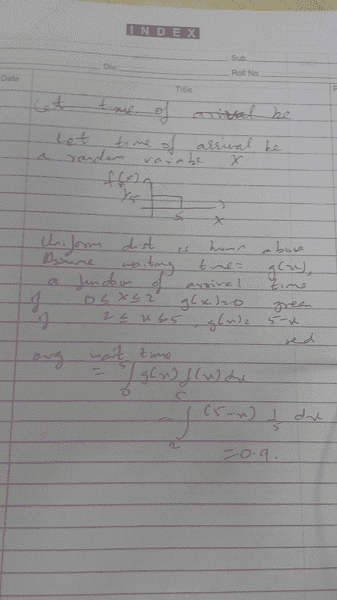 INDEX
Sub.
Div.
Roll No.
Date
Title
Let time of arrival be
Let time of arrival be
a random variabe X
f(x)
1/5
5
x
Uniform dist is how above
Assume waiting time = g(x),
a function of arrival time
if 0 ≤ x ≤ 2 g(x)=0 green
if 2 ≤ x ≤ 5, g(x)= 5-x
red
avg wait time
= ∫ 0 5 g(x) f(x) dx
= ∫ 2 5 (5-x) 1/5 dx
=0.9.